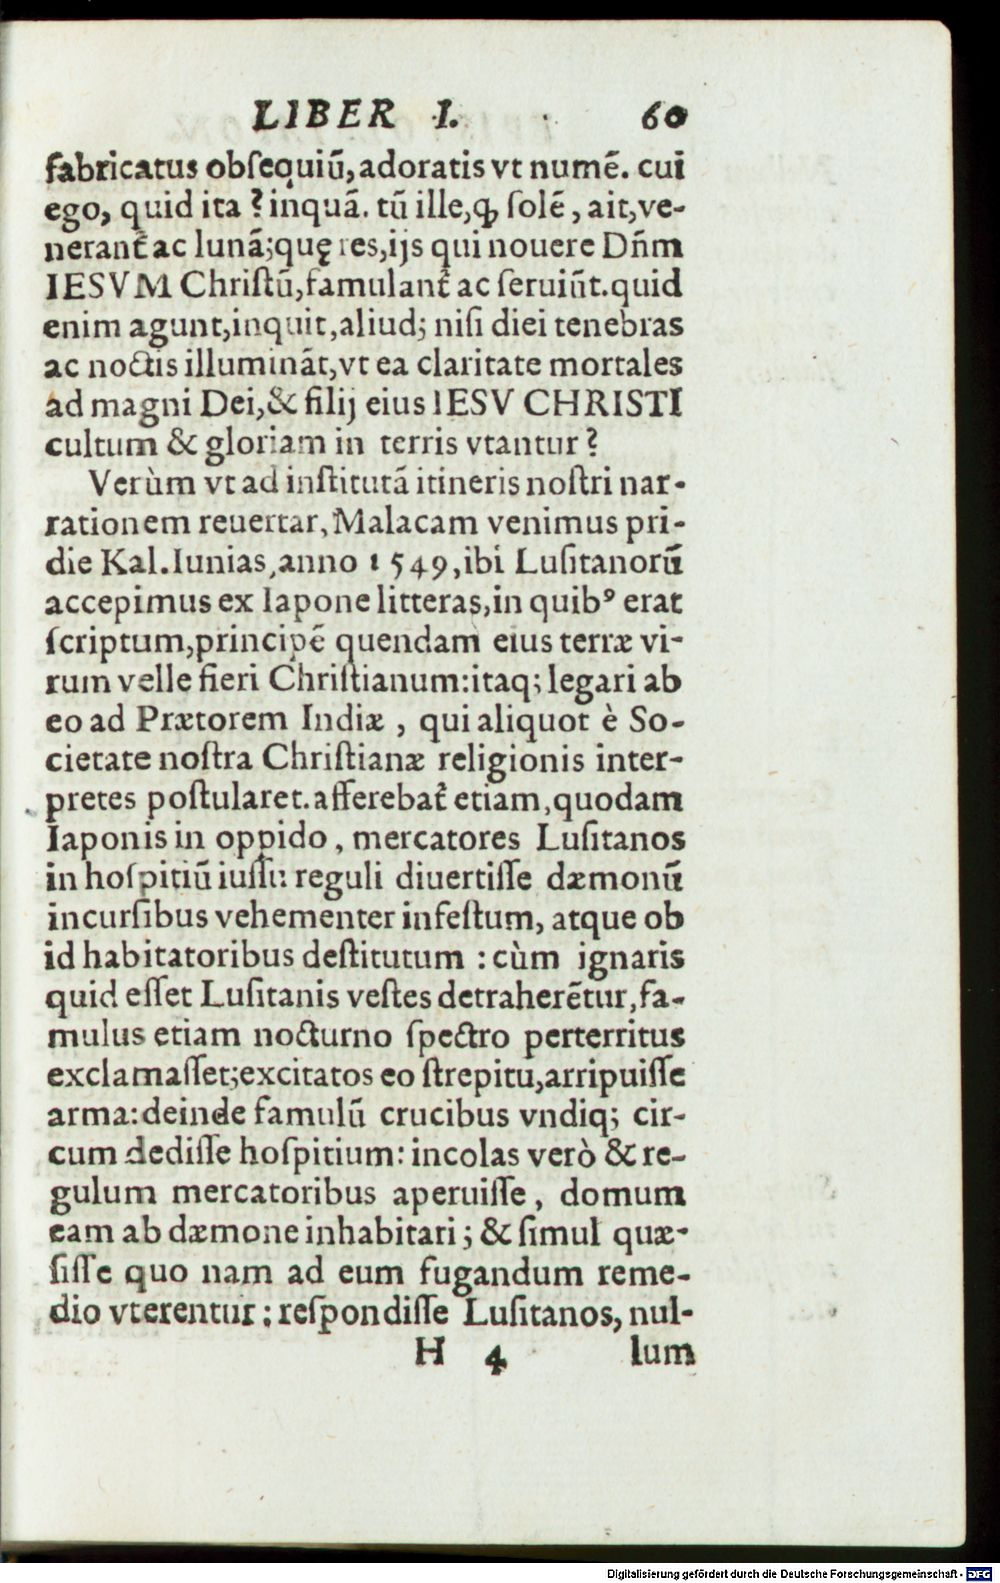 LIBER I. 60
fabricatus obſequiū, adoratis vt numē. cui
ego, quid ita? inquā. tū ille, ꝙ ſolē, ait, ve-
nerant᷑ ac lunā; quę res, ijs qui nouere Dñm
IESVM Chriſtū, famulant᷑ ac ſeruiūt. quid
enim agunt, inquit, aliud; niſi diei tenebras
ac noctis illuminãt, vt ea claritate mortales
ad magni Dei, & filij eius IESV CHRISTI
cultum & gloriam in terris vtantur?
Verùm vt ad inſtitutā itineris noſtri nar-
rationem reuertar, Malacam venimus pri-
die Kal. Iunias, anno 1549, ibi Luſitanorū
accepimus ex Iapone litteras, in quibꝰ erat
ſcriptum, principē quendam eius terræ vi-
rum velle fieri Chriſtianum: itaq; legari ab
eo ad Prætorem Indiæ, qui aliquot è So-
cietate noſtra Chriſtianæ religionis inter-
pretes poſtularet. afferebat᷑ etiam, quodam
Iaponis in oppido, mercatores Luſitanos
in hoſpitiū iuſſu reguli diuertiſſe dæmonū
incurſibus vehementer infeſtum, atque ob
id habitatoribus deſtitutum: cùm ignaris
quid eſſet Luſitanis veſtes detraherētur, fa-
mulus etiam nocturno ſpectro perterritus
exclamaſſet; excitatos eo ſtrepitu, arripuiſſe
arma: deinde famulū crucibus vndiq; cir-
cum dediſſe hoſpitium: incolas verò & re-
gulum mercatoribus aperuiſſe, domum
eam ab dæmone inhabitari; & ſimul quæ-
ſiſſe quo nam ad eum fugandum reme-
dio vterentur: reſpondiſſe Luſitanos, nul-
H 4 lum
Digitalisierung gefördert durch die Deutsche Forschungsgemeinschaft - DFG